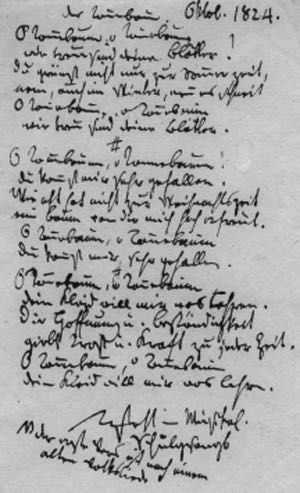 Der Tannenbaum, Oktob. 1824.
O Tannenbaum, o Tannenbaum!
wie treu sind deine Blätter!
Du grünst nicht nur zur Sommerzeit,
nein, auch im Winter, wenn es schneit
O Tannenbaum, o Tannenbaum
wie treu sind deine Blätter.
O Tannenbaum, o Tannenbaum!
du kannst mir sehr gefallen!
Wie oft hat nicht zur Weihnachtszeit
ein Baum von dir mich hoch erfreut.
O Tannenbaum, o Tannenbaum
du kannst mir sehr gefallen.
O Tannenbaum, o Tannenbaum
dein Kleid will mir was lehren.
Die Hoffnung u. Beständigkeit
giebt Trost u. Kraft zu jeder Zeit.
O Tannenbaum, o Tannenbaum
dein Kleid will mir was lehren.
der erste Vers ist nach einem
alten Volksliede